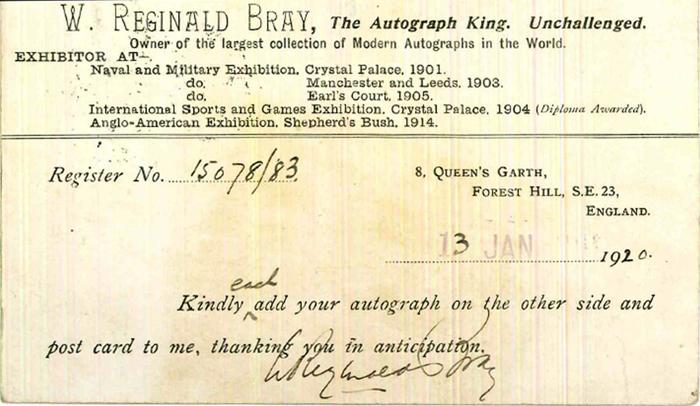 W. REGINALD BRAY, The Autograph King. Unchallenged.
Owner of the largest collection of Modern Autographs in the World.
EXHIBITOR AT—
Naval and Military Exhibition, Crystal Palace, 1901.
do. Manchester and Leeds, 1903.
do. Earl's Court, 1905.
International Sports and Games Exhibition, Crystal Palace, 1904 (Diploma Awarded).
Anglo-American Exhibition, Shepherd's Bush, 1914.
Register No. 15078/83
8, QUEEN'S GARTH,
FOREST HILL, S.E. 23,
ENGLAND.
13 JAN 1920.
each
Kindly add your autograph on the other side and
post card to me, thanking you in anticipation.
W Reginald Bray